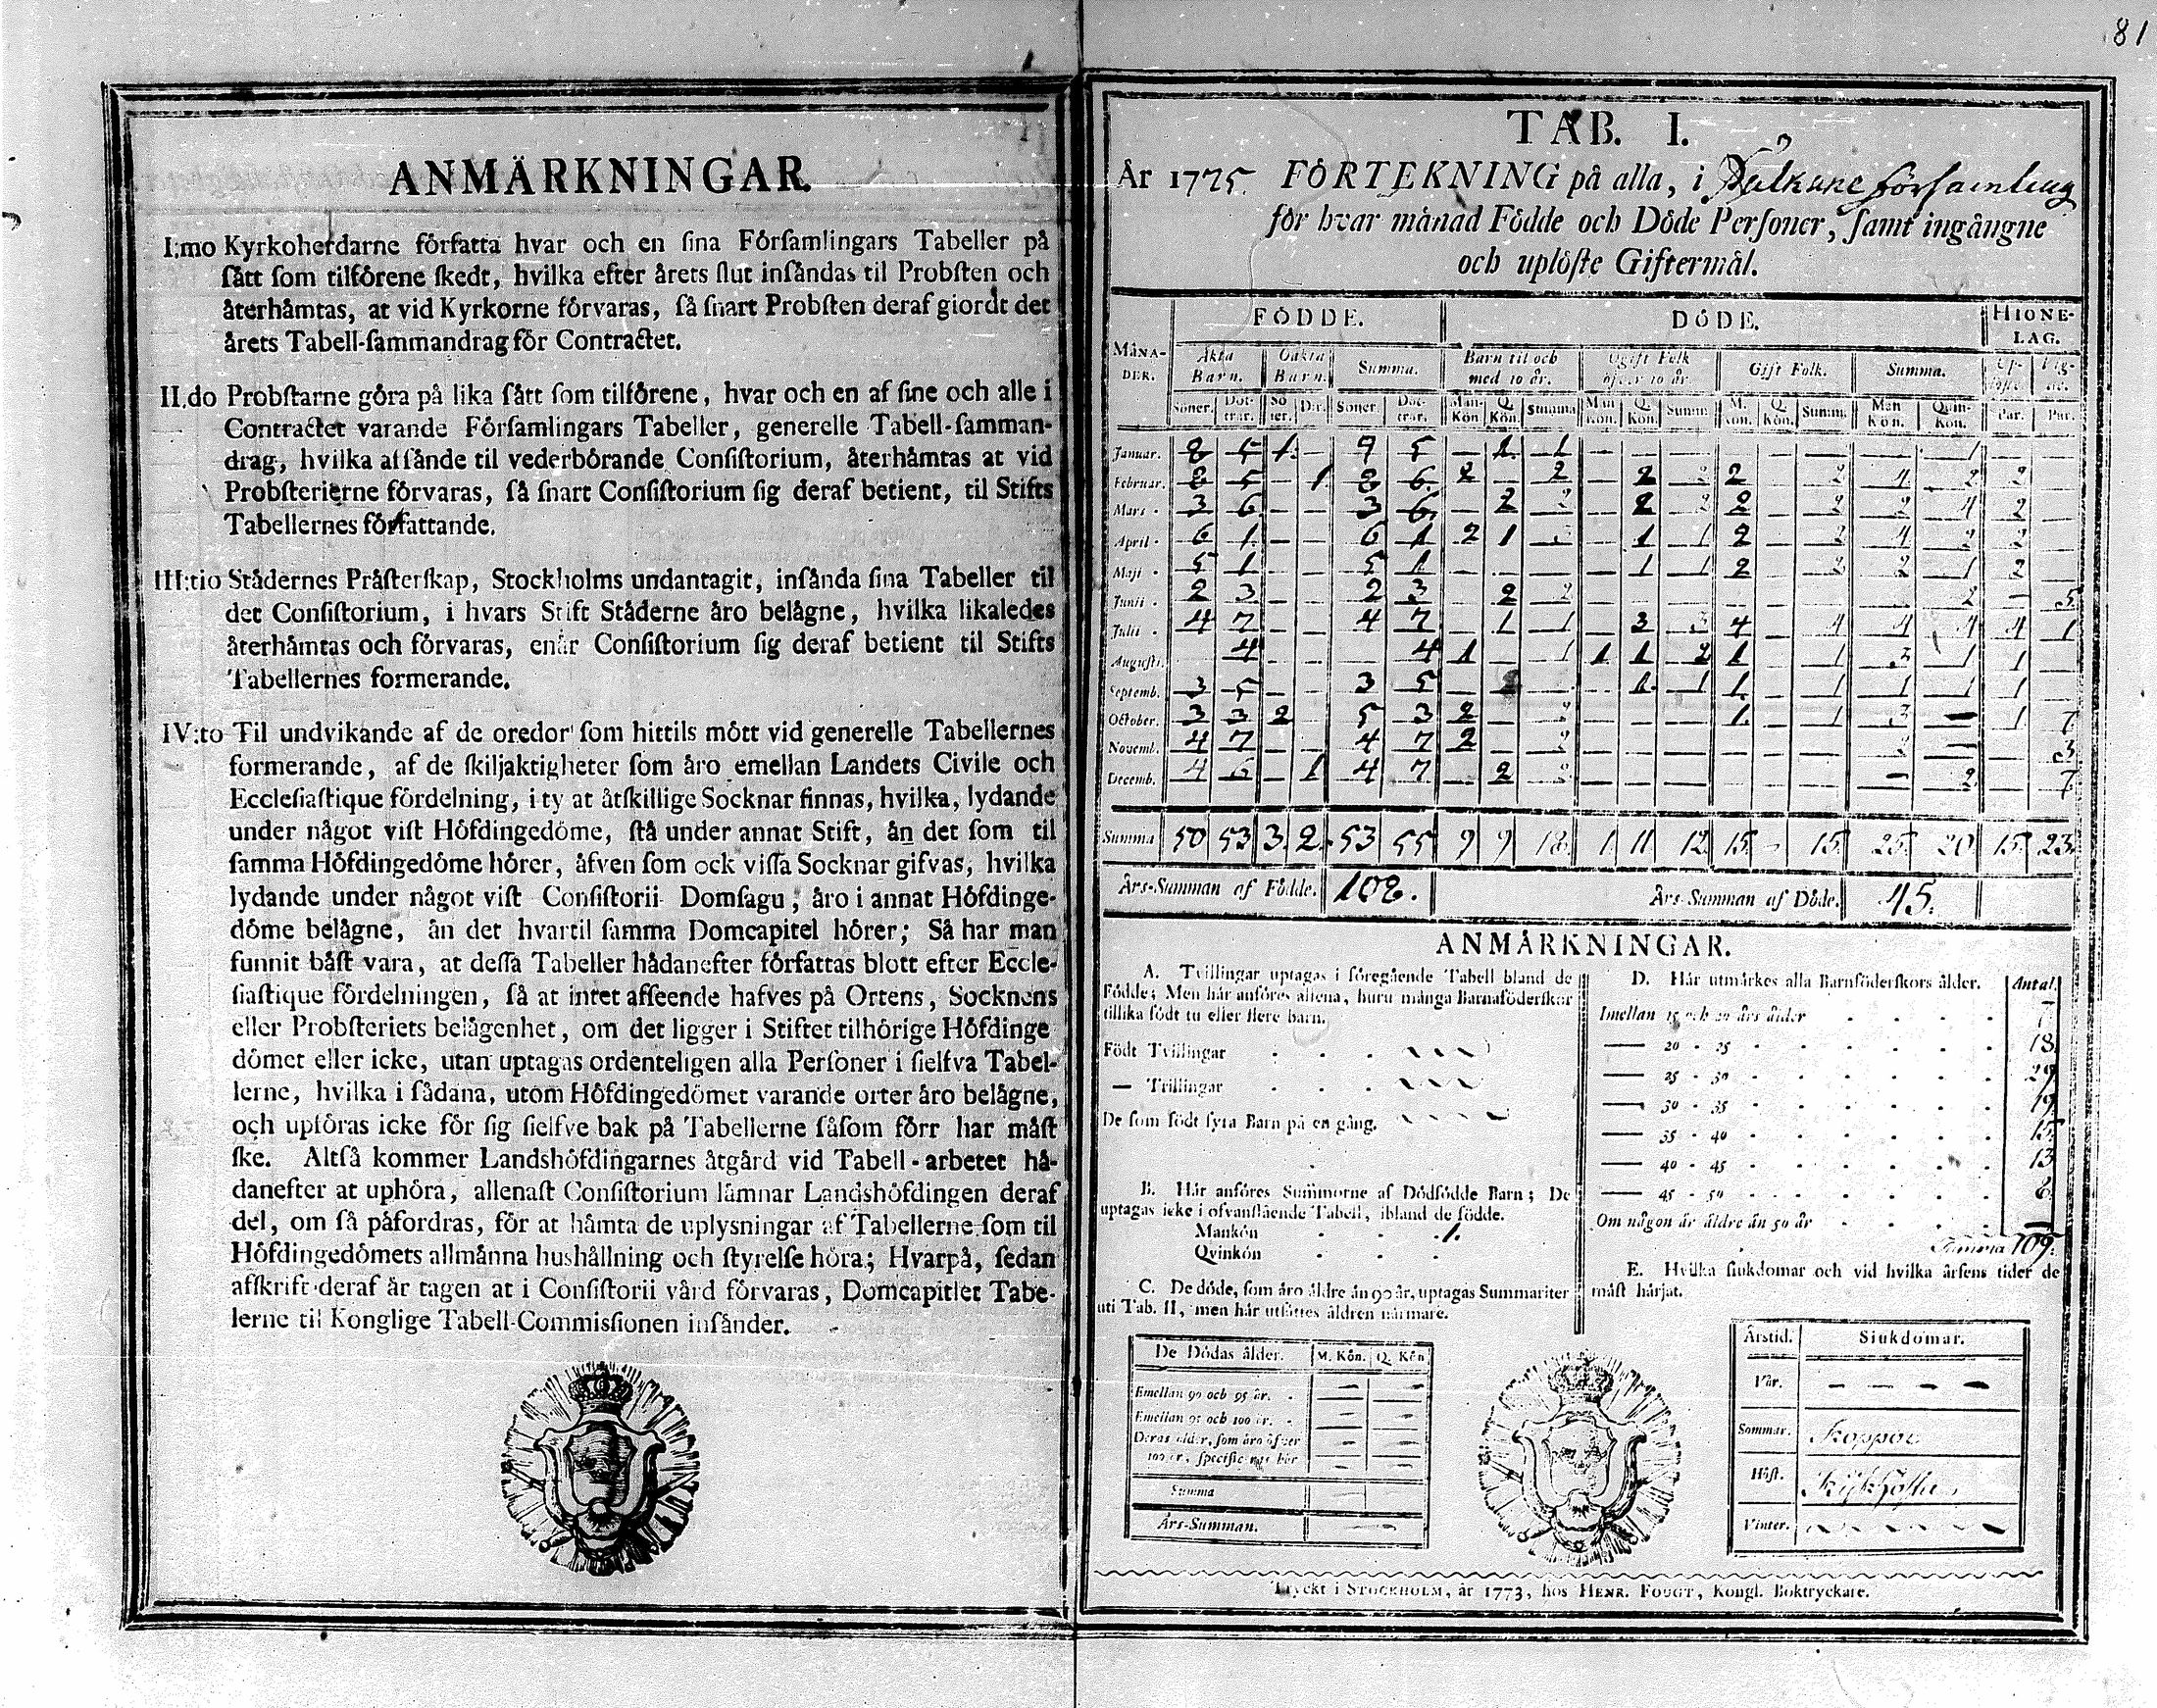 81
ANMÄRKNINGAR.
I:mo Kyrkoherdarne författa hvar och en sina Församlingars Tabeller på
sätt som tilförene skedt, hvilka efter årets slut insändas til Probsten och
återhämtas, at vid Kyrkorne förvaras, så snart Probsten deraf giordt det
årets Tabell-sammandrag för Contractet.
II.do Probstarne göra på lika sätt som tilförene, hvar och en af sine och alle i
Contractet varande Församlingars Tabeller, generelle Tabell-samman-
drag, hvilka afsände til vederbörande Consistorium, återhämtas at vid
Probsterierne förvaras, så snart Consistorium sig deraf betient, til Stifts
Tabellernes författande.
III:tio Städernes Prästerskap, Stockholms undantagit, insända sina Tabeller til
det Consistorium, i hvars Stift Städerne äro belägne, hvilka likaledes
återhämtas och förvaras, enär Consistorium sig deraf betient til Stifts
Tabellernes formerande.
IV:to Til undvikande af de oredor som hittils mött vid generelle Tabellernes
formerande, af de skiljaktigheter som äro emellan Landets Civile och
Ecclesiastique fördelning, i ty at åtskillige Socknar finnas, hvilka, lydande
under något vist Höfdingedöme, stå under annat Stift, än det som til
samma Höfdingedöme hörer, äfven som ock vissa Socknar gifvas, hvilka
lydande under något vist Consistorii Domsagu, äro i annat Höfdinge-
döme belägne, än det hvartil samma Domcapitel hörer; Så har man
funnit bäst vara, at dessa Tabeller hädanefter författas blott efter Eccle-
siastique fördelningen, så at intet afseende hafves på Ortens, Socknens
eller Probsteriets belägenhet, om det ligger i Stiftet tilhörige Höfdinge
dömet eller icke, utan uptagas ordenteligen alla Personer i sielfva Tabel-
lerne, hvilka i sådana, utom Höfdingedömet varande orter äro belägne,
och upföras icke för sig sielfve bak på Tabellerne såsom förr har måst
ske. Altså kommer Landshöfdingarnes åtgärd vid Tabell-arbetet hä-
danefter at uphöra, allenast Consistorium lämnar Landshöfdingen deraf
del, om så påfordras, för at hämta de uplysningar af Tabellerne som til
Höfdingedömets allmänna hushållning och styrelse höra; Hvarpå, sedan
afskrift deraf är tagen at i Consistorii vård förvaras, Domcapitlet Tabe-
lerne til Konglige Tabell-Commissionen insänder.
TAB. I.
År 1775. FÖRTEKNING på alla, i Pälkäne församling
för hvar månad Födde och Döde Personer, samt ingångne
och uplöste Giftermål.
MÅNA-DER. FÖDDE. DÖDE. HIONE-LAG.
Äkta Barn. Oäkta Barn. Summa. Barn til och med 10 år. Ogift Folk öfver 10 år. Gift Folk. Summa.
Söner. Dött-rar. Sö ner. Dtr. Söner. Döt-trar. Man-Kön Q. Kön. Summa Man Kön. Q. Kön. Summ. M. Kön. Q. Kön. Summ. Man Kön. Quin-Kön. Par. Par.
Januar. 8 5 1. — 9 5 — 1. 1 — — — — 1
Februar. 8 5 — 1 8 6. 2 — 2 — 2 2 2 — 2 4 2 2 —
Mars 3 6 — — 3 6. — 2 2 — 2 2 2 — 2 2 4 2 —
April 6 1 — — 6 1 2 1 3 — 1 1 2 — 2 4 2 2 —
Maji 5 1 — — 5 1 — — — — 1 1 2 — 2 2 1 2 —
Junii 2 3 — — 2 3 — 2 2 — — — — 2 — 5
Julii 4 7 — — 4 7 — 1 1 — 3 3 4 — 4 4 4 4 1
Augusti. 4 — — 4 1 — 1 1 1 2 1 — 1 3 1 1 —
Septemb. 3 5 — — 3 5 — — 1 1 1 — 1 1 1 1 —
October. 3 3 2 5 3 2 — 2 — — — 1. — 1 3 — 1 7
Novemb. 4 7 — — 4 7 2 — 2 — — — — 2 — 3
Decemb. 4 6 — 1 4 7 — 2 2 — — — — — 2 7
Summa 50 53 3 2 53 55 9 9 18. 1. 11 12. 15. - 15. 25. 20 15. 23.
Års-Summan af Födde. 108. Års-Summan af Döde. 45.
ANMÄRKNINGAR.
A. Tvillingar uptagas i föregående Tabell bland de
Födde; Men här anföres allena, huru många Barnaföderskor
tillika födt tu eller flere barn.
Födt Tvillingar
— Trillingar
De som födt fyra Barn på en gång.
B. Här anföres Summorne af Dödfödde Barn; De
uptagas icke i ofvanstående Tabell, ibland de födde.
Mankön 1.
Qvinkön
C. De döde, som äro äldre än 90 år, uptagas Summariter
uti Tab. II, men här utsättes åldren närmare.
De Dödas ålder. M. Kön. Q. Kön
Emellan 90 och 95 år. — —
Emellan 95 och 100 år. — —
Deras ålder, som äro öfver — —
100 år, specificeras här — —
Summa
Års-Summan.
D. Här utmärkes alla Barnföderskors ålder. Antal.
Imellan 15 och 20 års ålder 7
— 20 - 25 18.
— 25 - 30 29
— 30 - 35 19.
— 35 - 40 15.
— 40 - 45 13
— 45 - 50
Om någon är äldre än 50 år —
Summa 109.
E. Hvilka siukdomar och vid hvilka årsens tider de
mäst härjat.
Årstid. Siukdomar.
Vår. — — — —
Sommar. Koppor
Höst. Kikhosta
Vinter.
Tryckt i STOCKHOLM, år 1773, hos HENR. FOUGT, Kongl. Boktryckare.